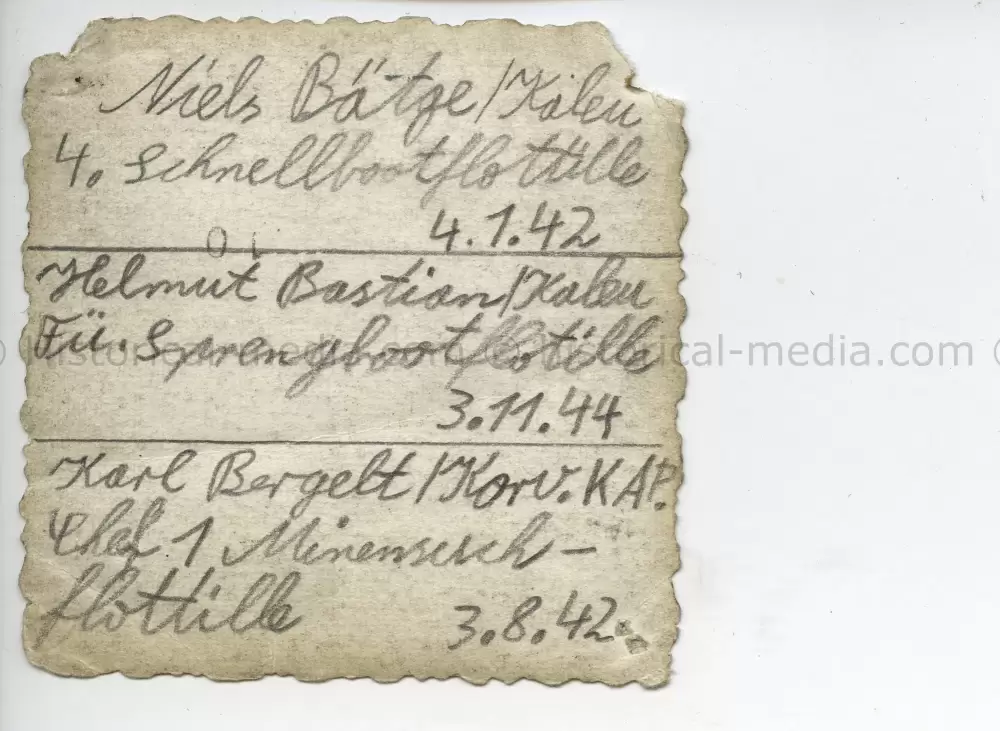 Niels Bätge/Kaleu
4. Schnellbootflottille
4.1.42
Helmut Bastian/Kaleu
Fü. Sprengbootflottille
3.11.44
Karl Bergelt/Korv. KAP.
Chef 1 Minensuch-
flottille
3.8.42.